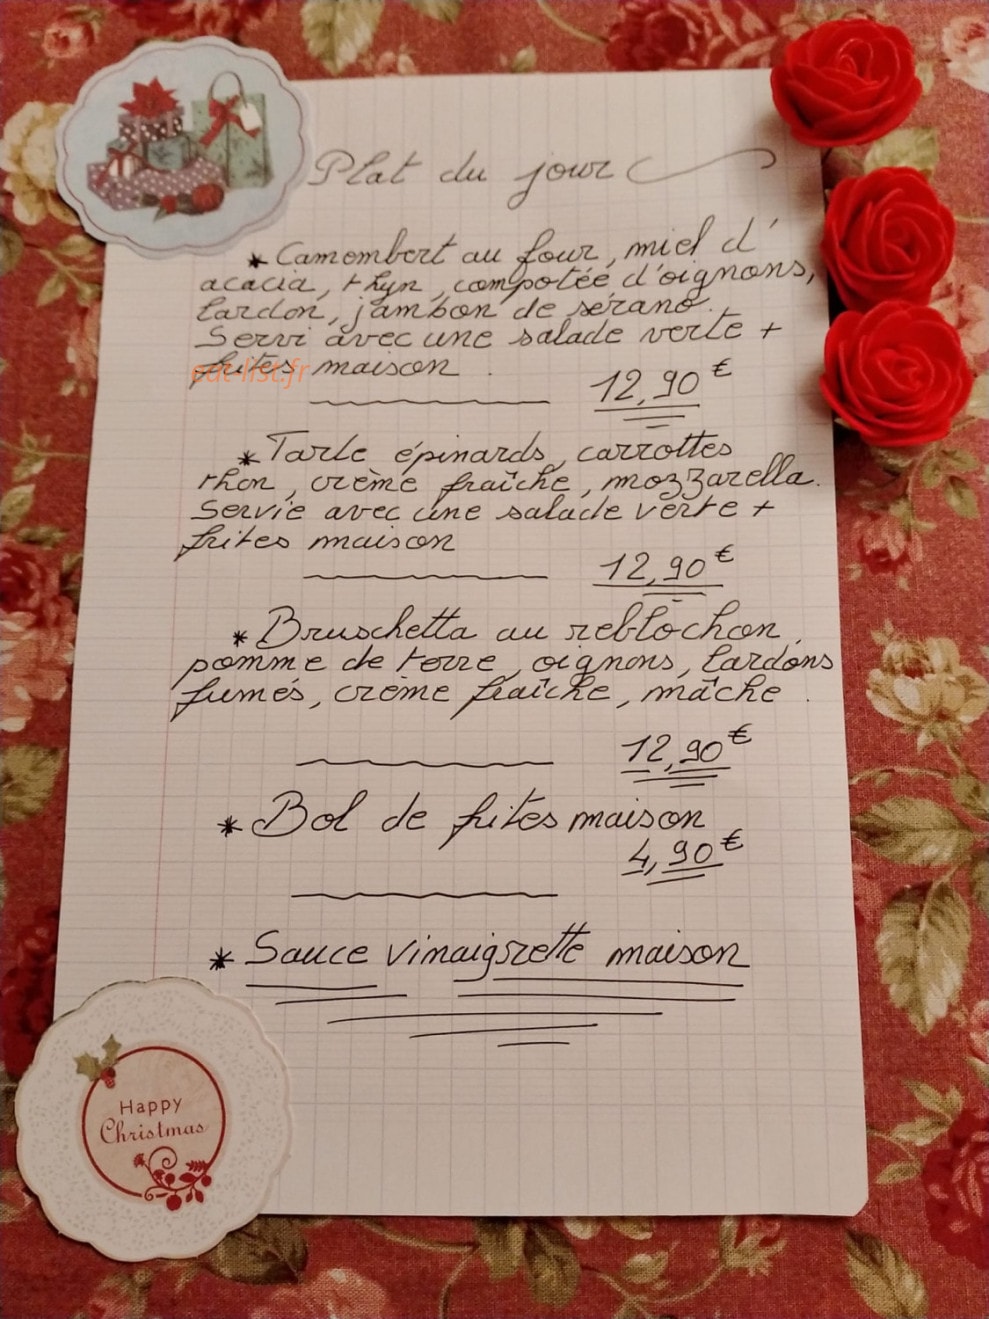 Plat du jour
* Camembert au four, miel d'
acacia, thyn, compotée d'oignons,
lardon, jambon de sérano.
Servi avec une salade verte +
frites maison.
eat-list.fr
12,90€
* Tarte épinards, carrottes
thon, crème fraîche, mozzarella.
Servie avec une salade verte +
frites maison
12,90€
* Bruschetta au reblochon,
pomme de terre, oignons, lardons
fumés, crème fraîche, mâche.
12,90€
* Bol de frites maison
4,90€
* Sauce vinaigrette maison
Happy
Christmas